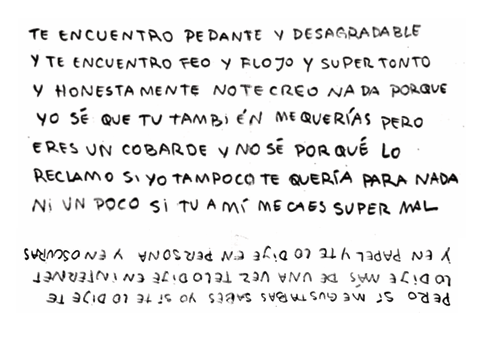 TE ENCUENTRO PEDANTE Y DESAGRADABLE
Y TE ENCUENTRO FEO Y FLOJO Y SUPER TONTO
Y HONESTAMENTE NO TE CREO NADA PORQUE
YO SÉ QUE TU TAMBIÉN ME QUERÍAS PERO
ERES UN COBARDE Y NO SÉ POR QUÉ LO
RECLAMO SI YO TAMPOCO TE QUERÍA PARA NADA
NI UN POCO SI TU A MÍ ME CAES SUPER MAL
PERO SÍ ME GUSTABAS SABES YO SÍ TE LO DIJE TE
LO DIJE MÁS DE UNA VEZ TE LO DIJE EN INTERNET
Y EN PAPEL Y TE LO DIJE EN PERSONA Y EN OSCURAS